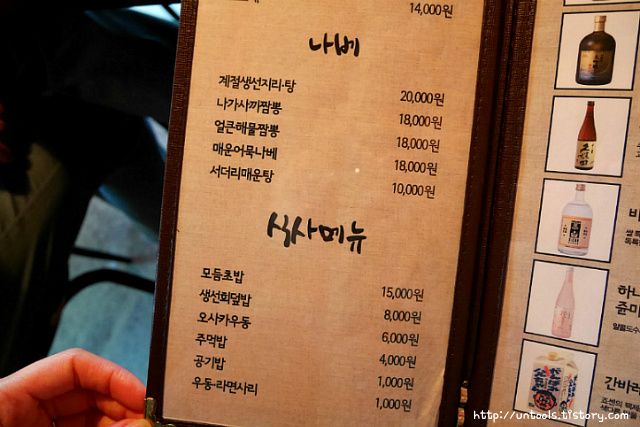 14,000원
나베
계절생선지리·탕 20,000원
나가사끼짬뽕 18,000원
얼큰해물짬뽕 18,000원
매운어묵나베 18,000원
서더리매운탕 10,000원
식사메뉴
모듬초밥 15,000원
생선회덮밥 8,000원
오사카우동 6,000원
주먹밥 4,000원
공기밥 1,000원
우동·라면사리 1,000원
하나
쥰미
알콜도수
간바레
http://untools.tistory.com